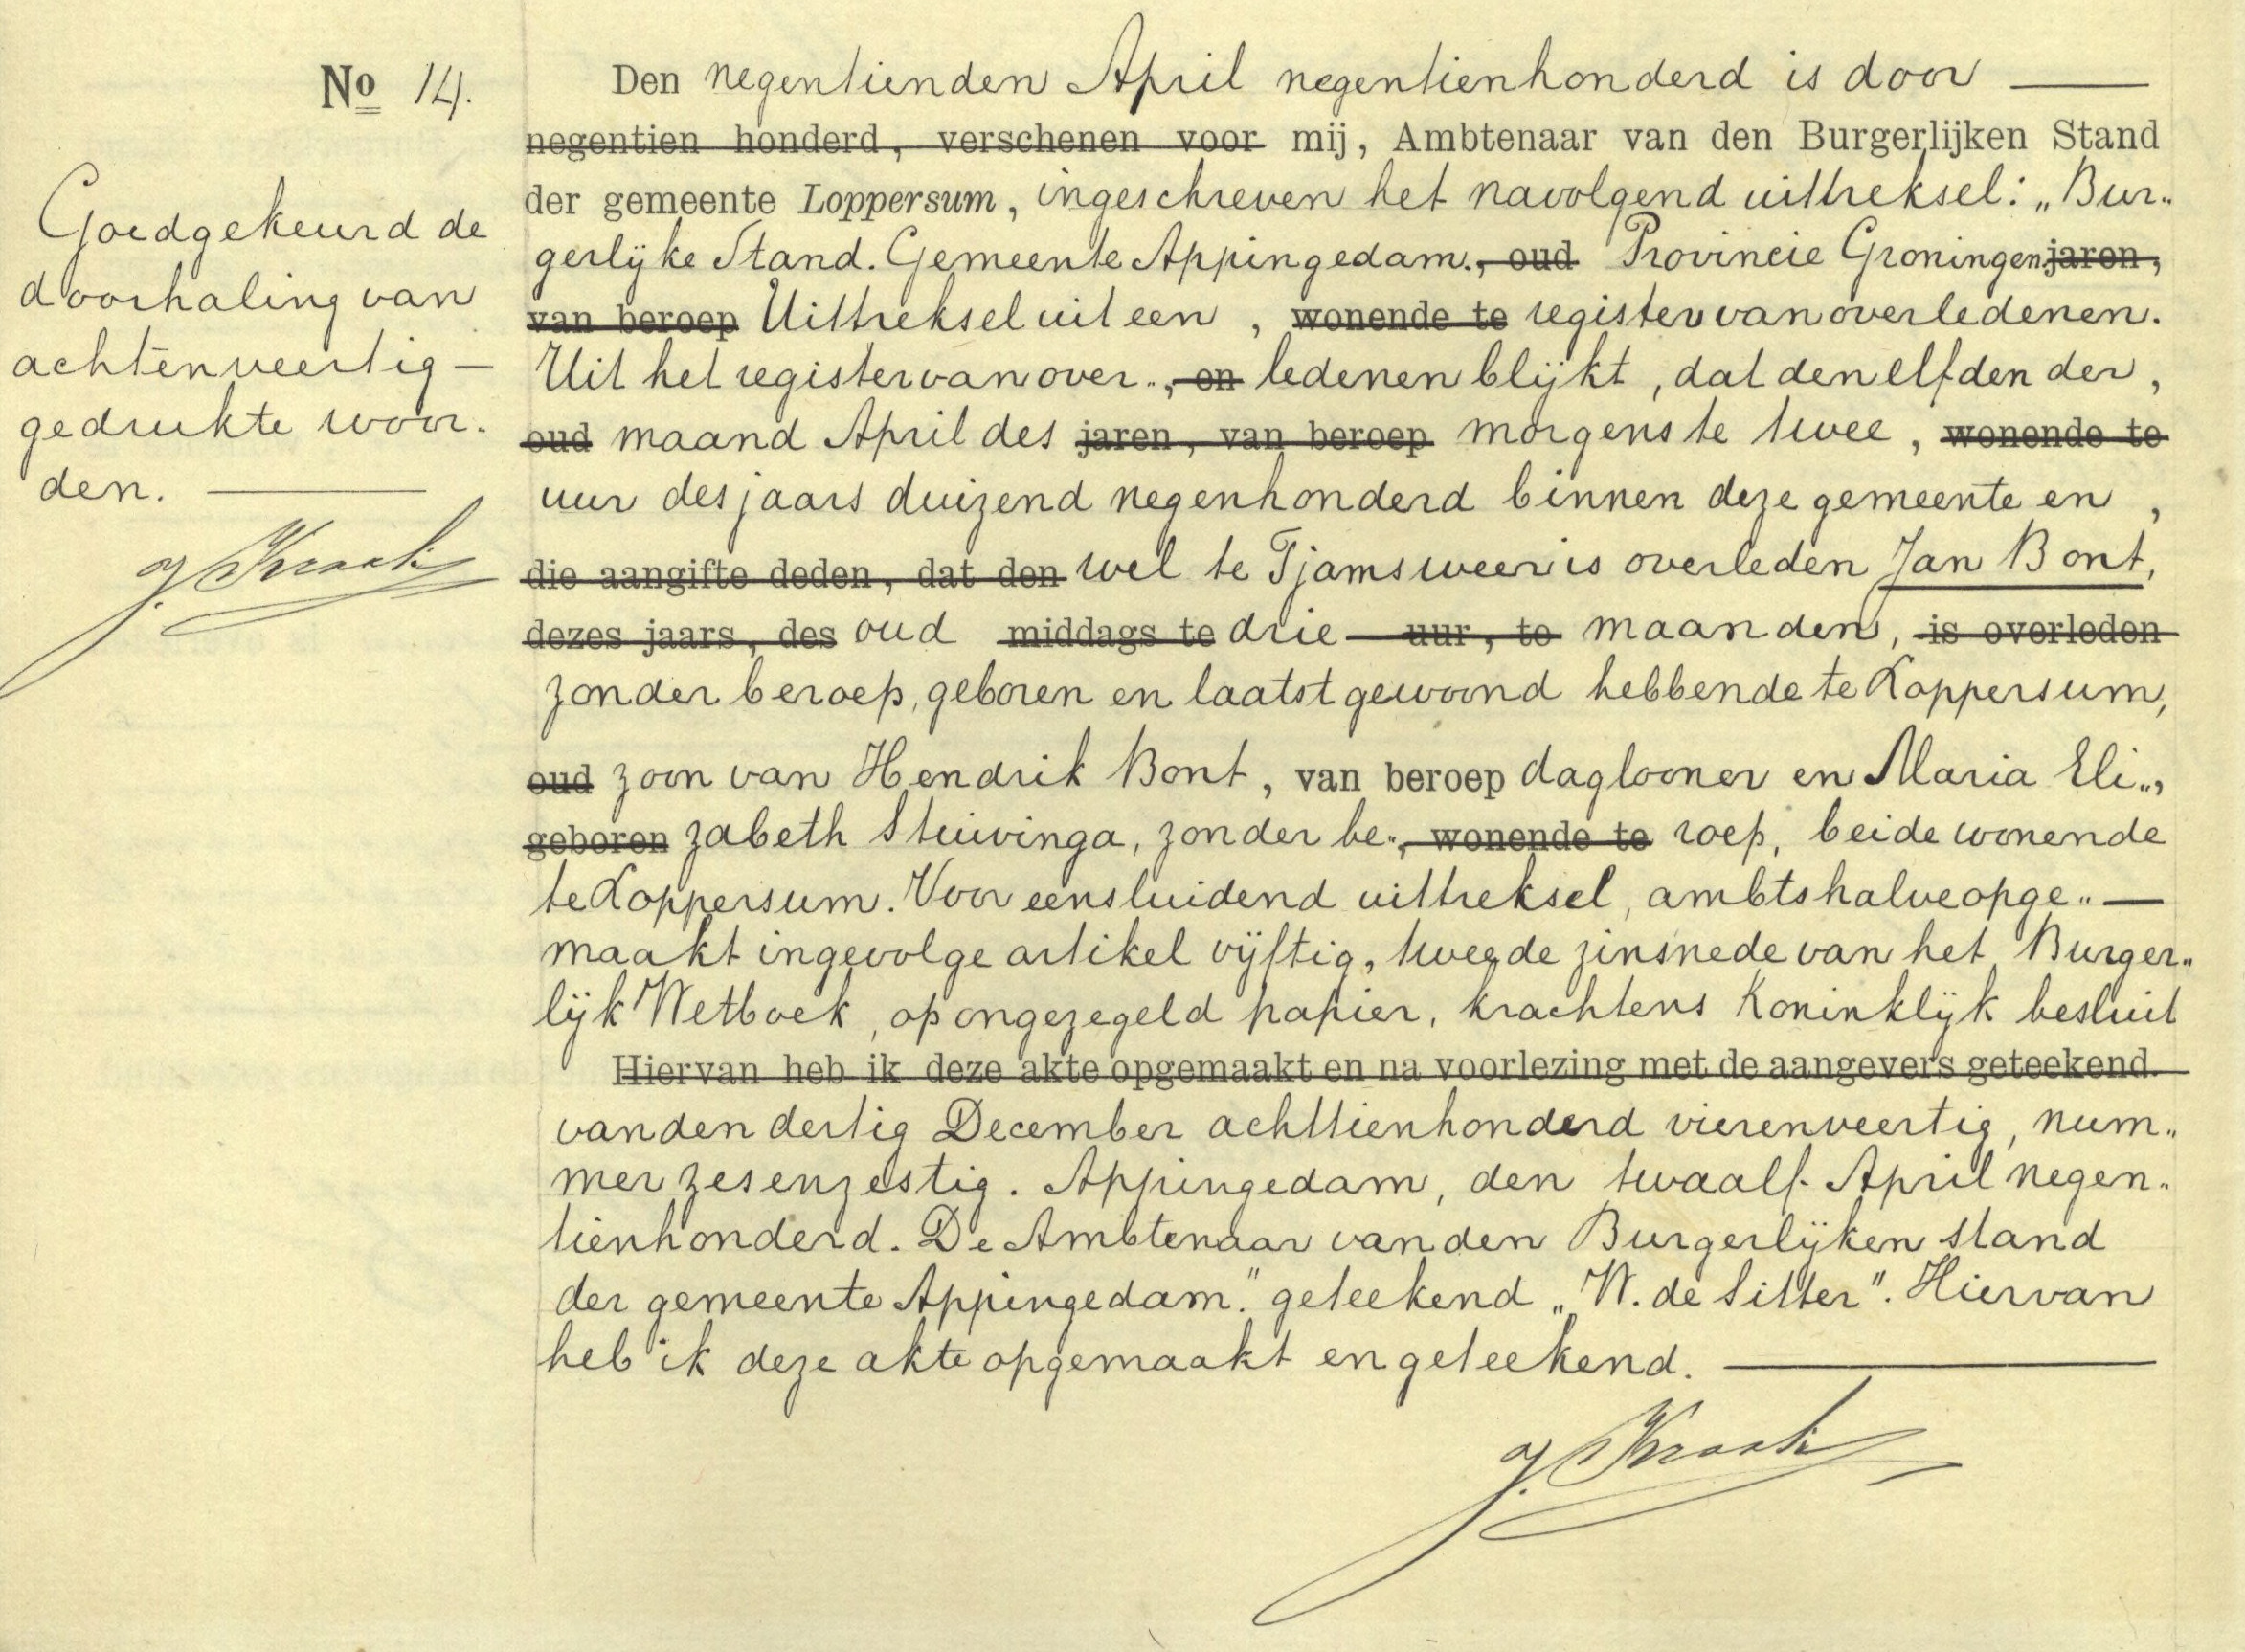 No 14.
Den negentienden April negentienhonderd is door
negentien honderd, verschenen voor mij, Ambtenaar van den Burgerlijken Stand
der gemeente Loppersum, ingeschreven het navolgend uittreksel: „Bur„
gerlijke Stand. Gemeente Appingedam., oud Provincie Groningen. jaren,
van beroep Uittreksel uit een , wonende te register van overledenen.
Uit het register van over„, en ledenen blijkt, dat den elfden der,
oud maand April des jaren, van beroep morgens te twee, wonende te
uur des jaars duizend negenhonderd binnen deze gemeente en ,
die aangifte deden, dat den wel te Tjamsweer is overleden Jan Bont,
dezes jaars, des oud middags te drie uur, te maanden, is overleden
zonder beroep, geboren en laatst gewoond hebbende te Loppersum,
oud zoon van Hendrik Bont, van beroep daglooner en Maria Eli„,
geboren zabeth Stuivinga, zonder be„, wonende te roep, beide wonende
te Loppersum. Voor eensluidend uittreksel, ambtshalve opge„
maakt ingevolge artikel vijftig, tweede zinsnede van het Burger„
lijk Wetboek, op ongezegeld papier, krachtens Koninklijk besluit
Hiervan heb ik deze akte opgemaakt en na voorlezing met de aangevers geteekend.
van den dertig December achttienhonderd vierenveertig, num„
mer zesenzestig. Appingedam, den twaalf April negen„
tienhonderd. De Ambtenaar van den Burgerlijken stand
der gemeente Appingedam." geteekend „W. de Sitter". Hiervan
heb ik deze akte opgemaakt en geteekend.
Goedgekeurd de
doorhaling van
achtenveertig
gedrukte woor-
den.